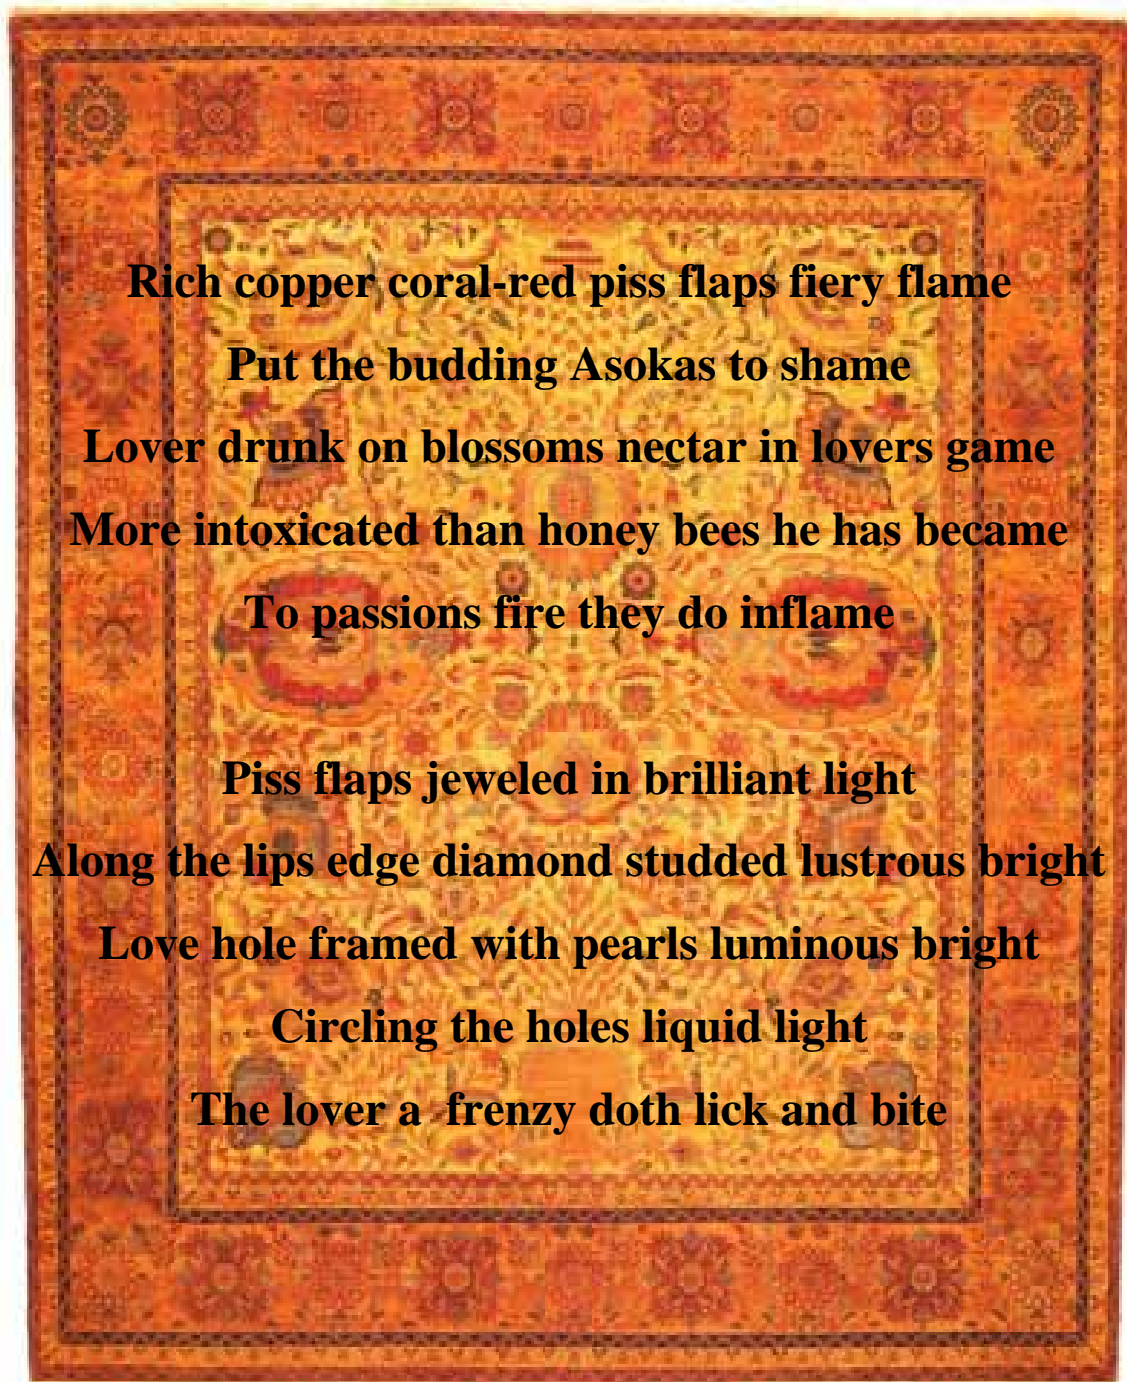 Rich copper coral-red piss flaps fiery flame
Put the budding Asokas to shame
Lover drunk on blossoms nectar in lovers game
More intoxicated than honey bees he has became
To passions fire they do inflame
Piss flaps jeweled in brilliant light
Along the lips edge diamond studded lustrous bright
Love hole framed with pearls luminous bright
Circling the holes liquid light
The lover a  frenzy doth lick and bite